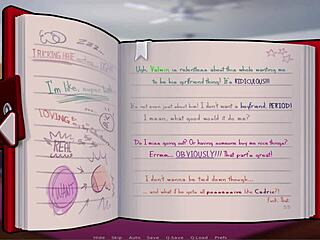 I'm like, super
LOVING
REAL
WANT
Ugh, Valwin is relentless about this whole wanting me
to be his girlfriend thing! It's RIDICULOUS!!!
It's not even just about him! I don't want a boyfriend, PERIOD!
I mean, what good would it do me?
Do I miss going out? Or having someone buy me nice things?
Errmm... OBVIOUSLY!!! That part's great!
I don't wanna be tied down though...
... and what if he gets all like Cedric?!
Fuck. That.
Hide Skip Auto Save Q.Save Q.Load Prefs